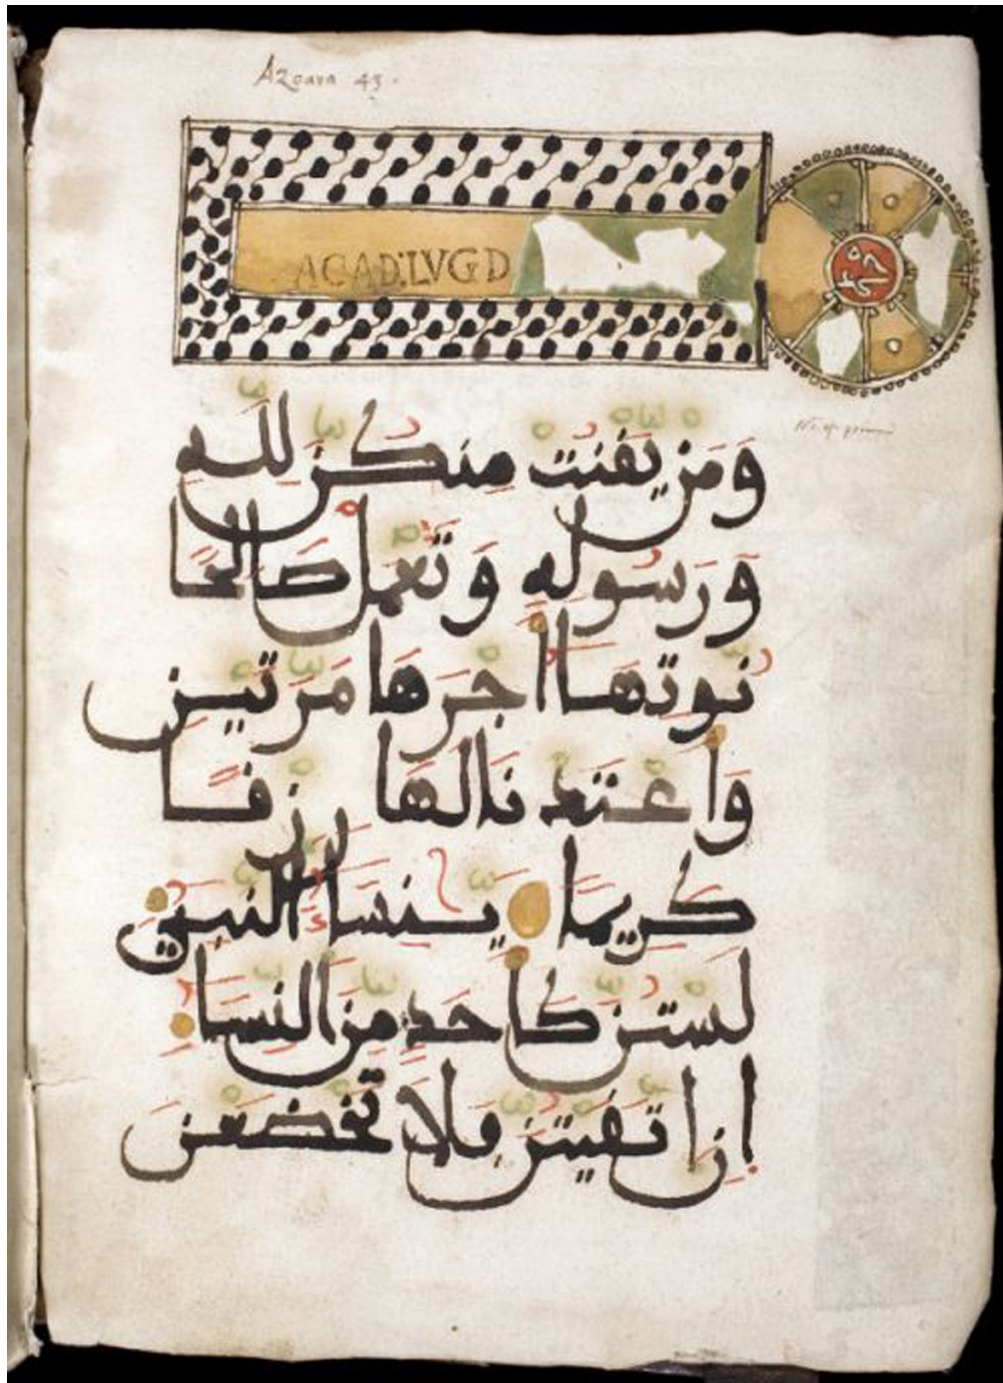 Azoara 43.
ACAD: LVGD
وَمَنْ يَّقْنُتْ مِنكُنَّ لِلَّهِ
وَرَسُولِهِ وَتَعْمَلْ صَالِحًا
نُّوتِهَا أَجْرَهَا مَرَّتَيْنِ
وَأَعْتَدْنَا لَهَا رِزْقًا
كَرِيمًا يَنِسَاءَ النَّبِيءِ
لَسْتُنَّ كَأَحَدٍ مِّنَ النِّسَاءِ
إِنِ اتَّقَيْتُنَّ فَلاَ تَخْضَعْنَ